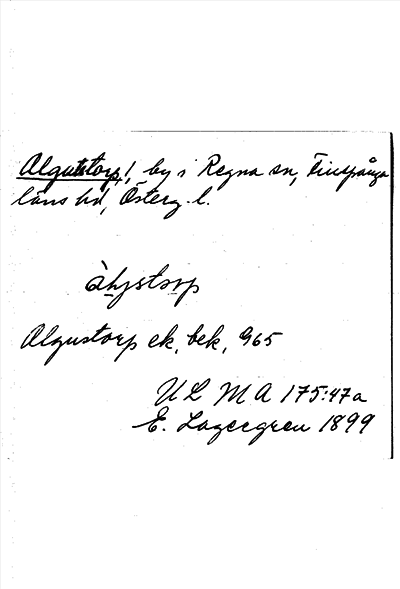 Algutstorp!, by i Regna sn, Finspånga
läns hd, Österg. l.
àļgstorp
Algustorp ek. bek. 965
ULMA 175:47a
E. Lagergren 1899